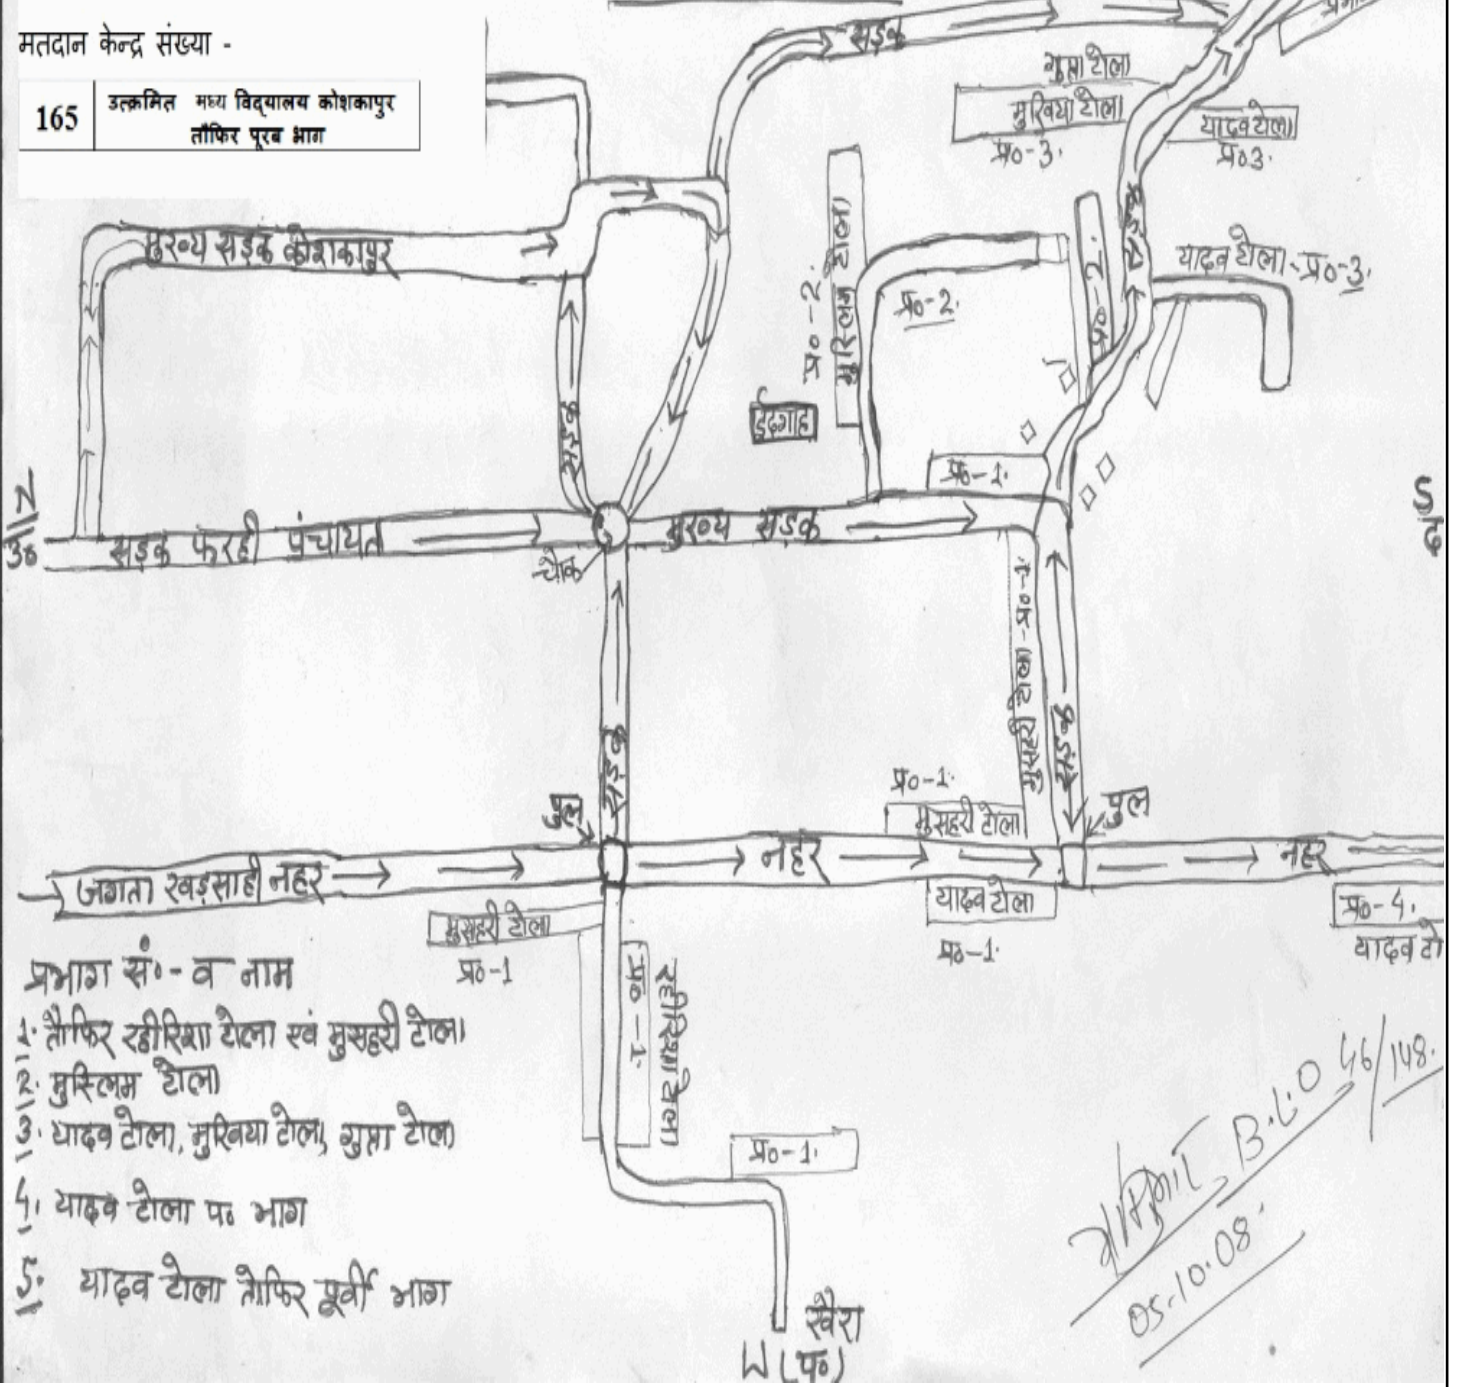 मतदान केन्द्र संख्या -
165 उत्क्रमित मध्य विद्यालय कोशकापुर
तौफिर पूरब भाग
सड़क
गुप्ता टोला
मुखिया टोला
प्र०-3.
यादव टोला
प्र०3.
मुख्य सड़क कोशकापुर
प्र०-2.
मुस्लिम टोला
प्र०-2.
प्र०-2.
सड़क
यादव टोला-प्र०-3.
सड़क
ईदगाह
प्र०-1.
N
उ०
S
द
सड़क फरही पंचायत
मुख्य सड़क
चौक
मुसहरी टोला-प्र०-1
सड़क
सड़क
पुल
प्र०-1.
मुसहरी टोला
पुल
जगता खड़साही नहर
नहर
नहर
मुसहरी टोला
प्र०-1
यादव टोला
प्र०-1.
प्र०-4.
यादव टो
प्रभाग सं०- व नाम
प्र०-1.
1. तौफिर रहीरिशा टोला एवं मुसहरी टोला
2. मुस्लिम टोला
3. यादव टोला, मुखिया टोला, गुप्ता टोला
4. यादव टोला प० भाग
5. यादव टोला तौफिर पूर्वी भाग
प्र०-1.
B.L.O 46/148.
05.10.08
खैरा
W (प०)